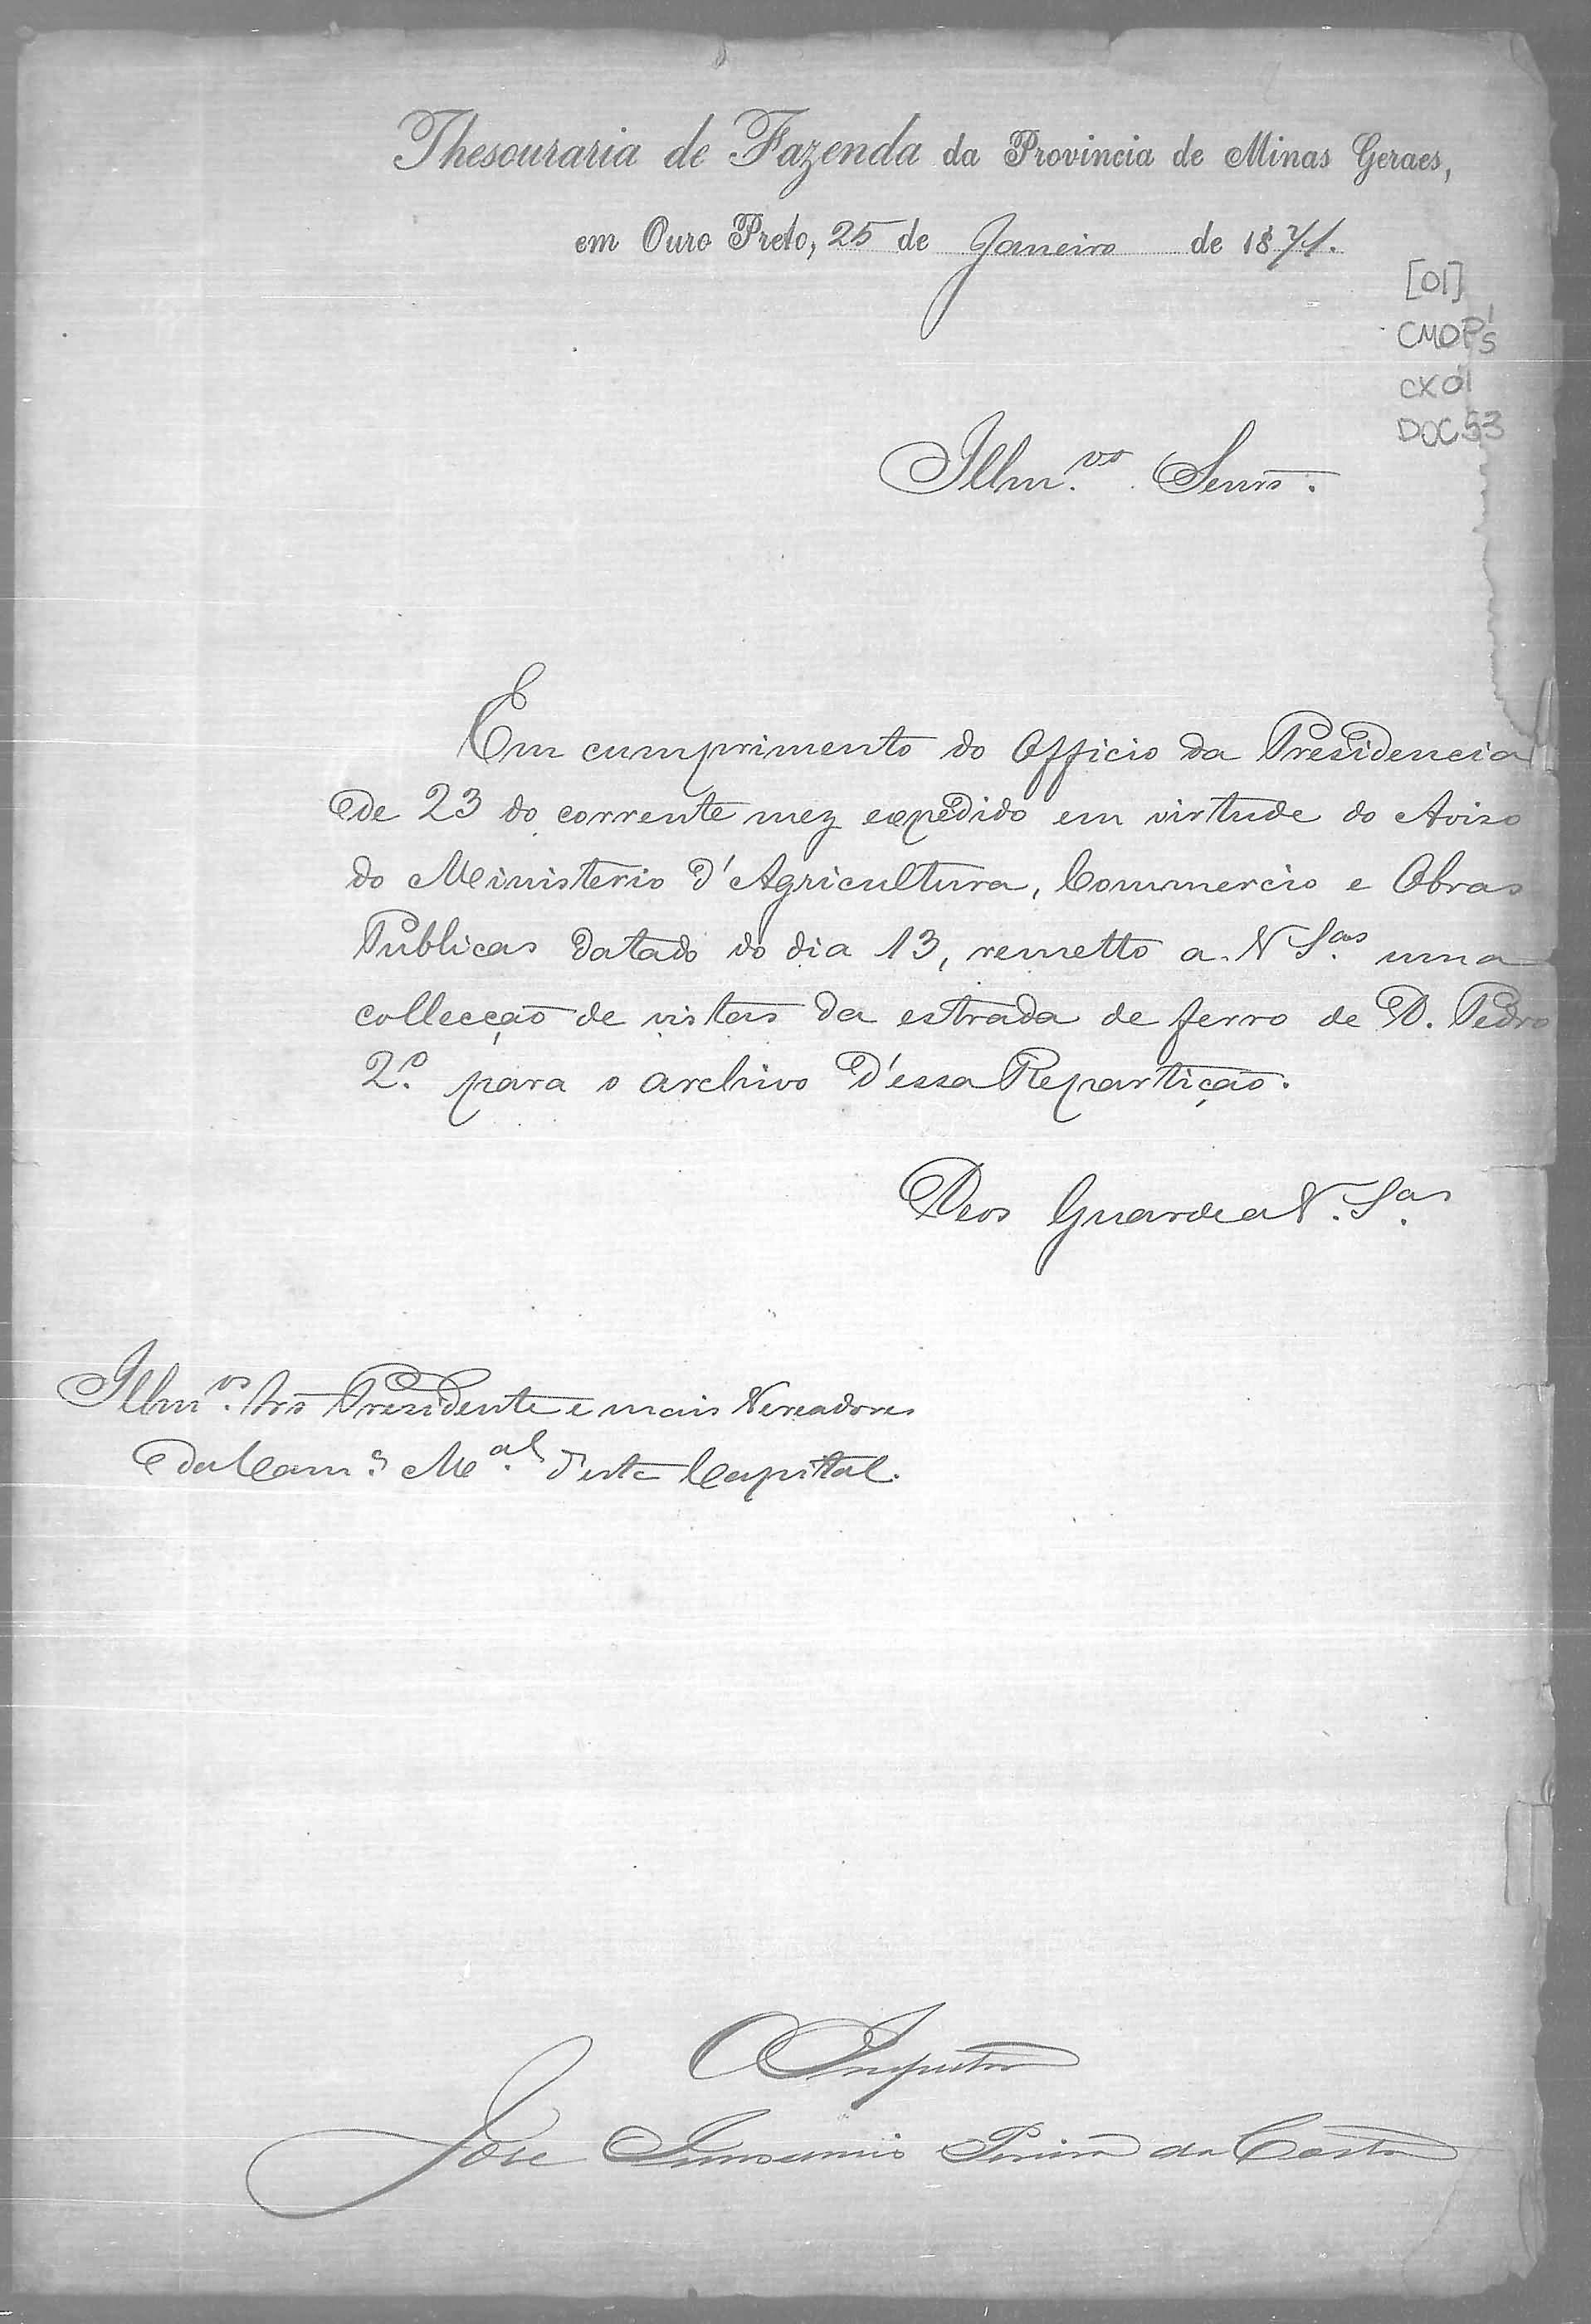 Thesouraria de Fazenda da Provincia de Minas Geraes,
em Ouro Preto, 25 de Janeiro de 1871.
[01]
CMOP
CX 01
DOC 53
Illm.os Senrs.
Em cumprimento do Officio da Presidencia
de 23 do corrente mez expedido em virtude do Aviso
do Ministerio d'Agricultura, Commercio e Obras
Publicas datado do dia 13, remetto a V S.as uma
collecção de vistas da estrada de ferro de D. Pedro
2.º para o archivo d'essa Repartição.
Deos Guarde a V. S.as
Illm.os Srs Presidente e mais Vereadores
da Cam.ª M.al d'esta Capital.
O Inspector
José Pereira da Costa